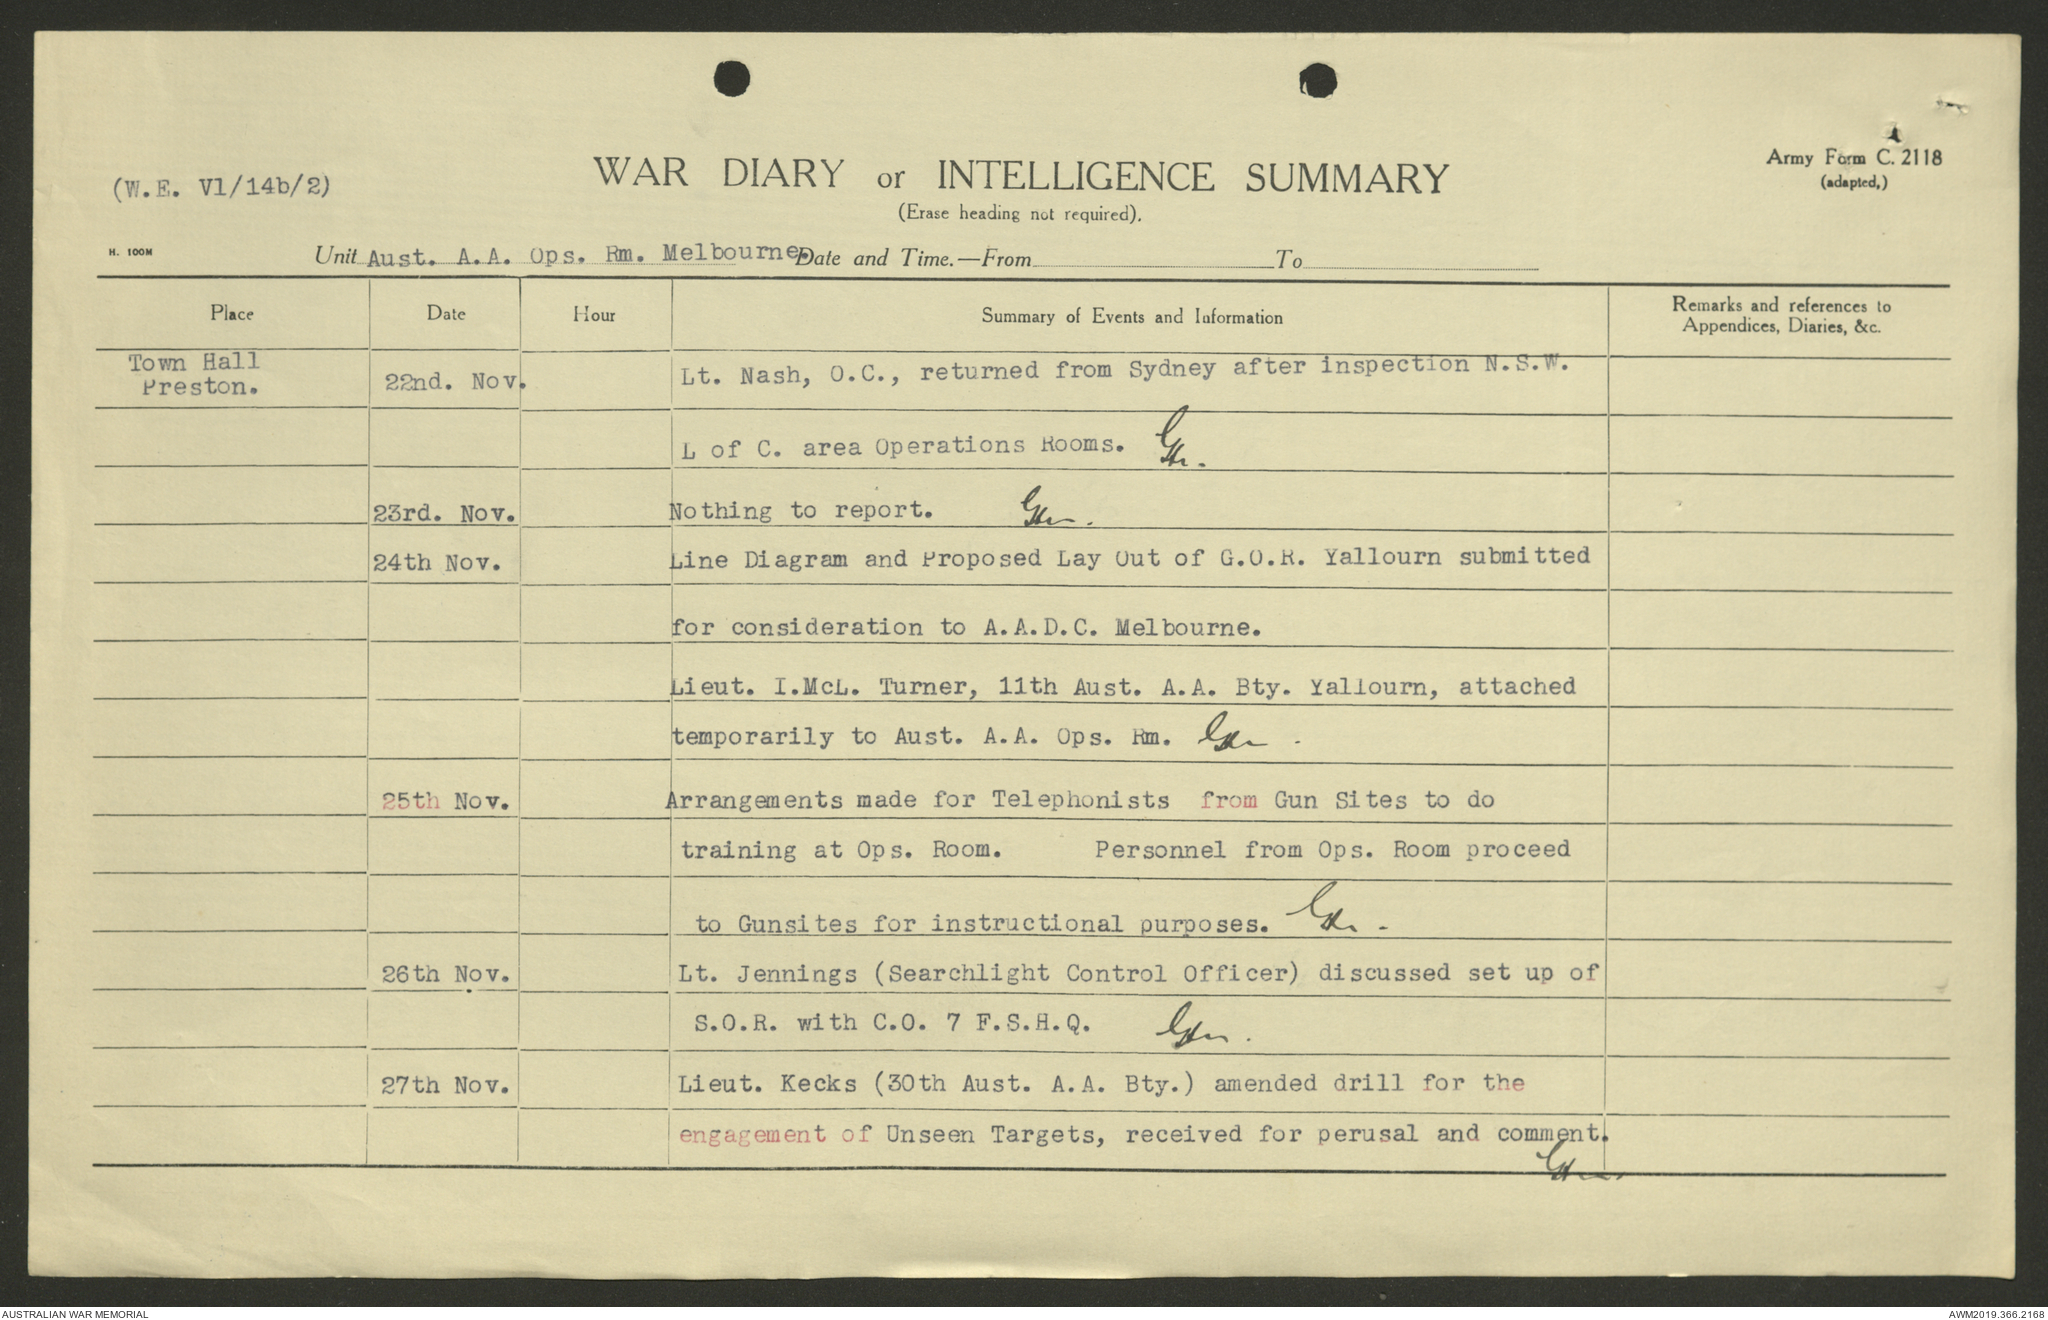 (W.E. V1/14b/2)
WAR DIARY or INTELLIGENCE SUMMARY
(Erase heading not required).
Army Form C. 2118
(adapted.)
H. 100M
Unit Aust. A.A. Ops. Rm. Melbourne. Date and Time.—From To
Place Date Hour Summary of Events and Information Remarks and references to
Appendices, Diaries, &c.
Town Hall
Preston. 22nd. Nov. Lt. Nash, O.C., returned from Sydney after inspection N.S.W.
L of C. area Operations Rooms.
23rd. Nov. Nothing to report.
24th Nov. Line Diagram and Proposed Lay Out of G.O.R. Yallourn submitted
for consideration to A.A.D.C. Melbourne.
Lieut. I.McL. Turner, 11th Aust. A.A. Bty. Yallourn, attached
temporarily to Aust. A.A. Ops. Rm.
25th Nov. Arrangements made for Telephonists from Gun Sites to do
training at Ops. Room. Personnel from Ops. Room proceed
to Gunsites for instructional purposes.
26th Nov. Lt. Jennings (Searchlight Control Officer) discussed set up of
S.O.R. with C.O. 7 F.S.H.Q.
27th Nov. Lieut. Kecks (30th Aust. A.A. Bty.) amended drill for the
engagement of Unseen Targets, received for perusal and comment.
AUSTRALIAN WAR MEMORIAL
AWM2019.366.2168